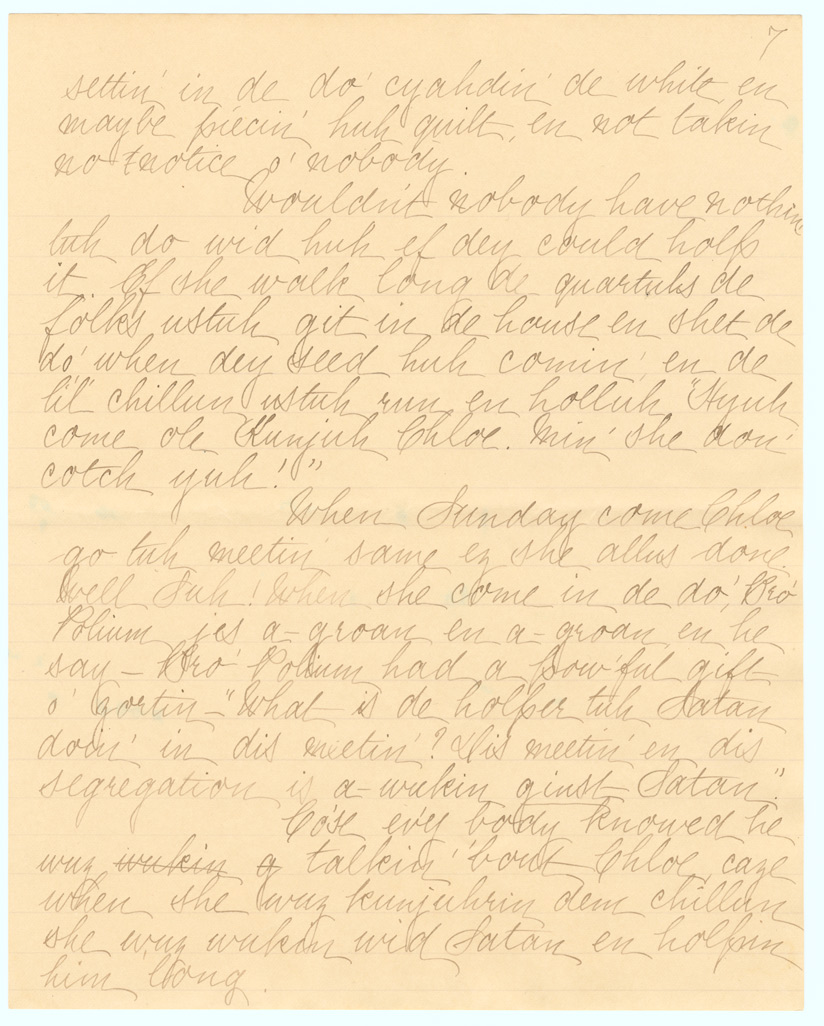 7
settin' in de do' cyahdin' de while, en
maybe piecin' huh quilt, en not takin
no notice o' nobody.
Wouldn't nobody have nothin'
tuh do wid huh ef dey could holp
it. Ef she walk long de quartuhs de
folks ustuh git in de house en shet de
do' when dey seed huh comin', en de
li'l' chillun ustuh run en holluh "Hyuh
come ole Kunjuh Chloe. Min' she don'
cotch yuh!"
When Sunday come Chloe
go tuh meetin' same ez she allus done.
Well Suh! When she come in de do', Bro'
Polium jes a-groan en a-groan en he
say — Bro' Polium had a pow'ful gift
o' gortin — "What is de holper tuh Satan
doin' in dis meetin'? Dis meetin' en dis
segregation is a-wukin ginst Satan."
Co'se ev'y body knowed he
wuz wukin a talkin' 'bout Chloe, caze
when she wuz kunjuhrin dem chillun
she wuz wukin wid Satan en holpin
him 'long.